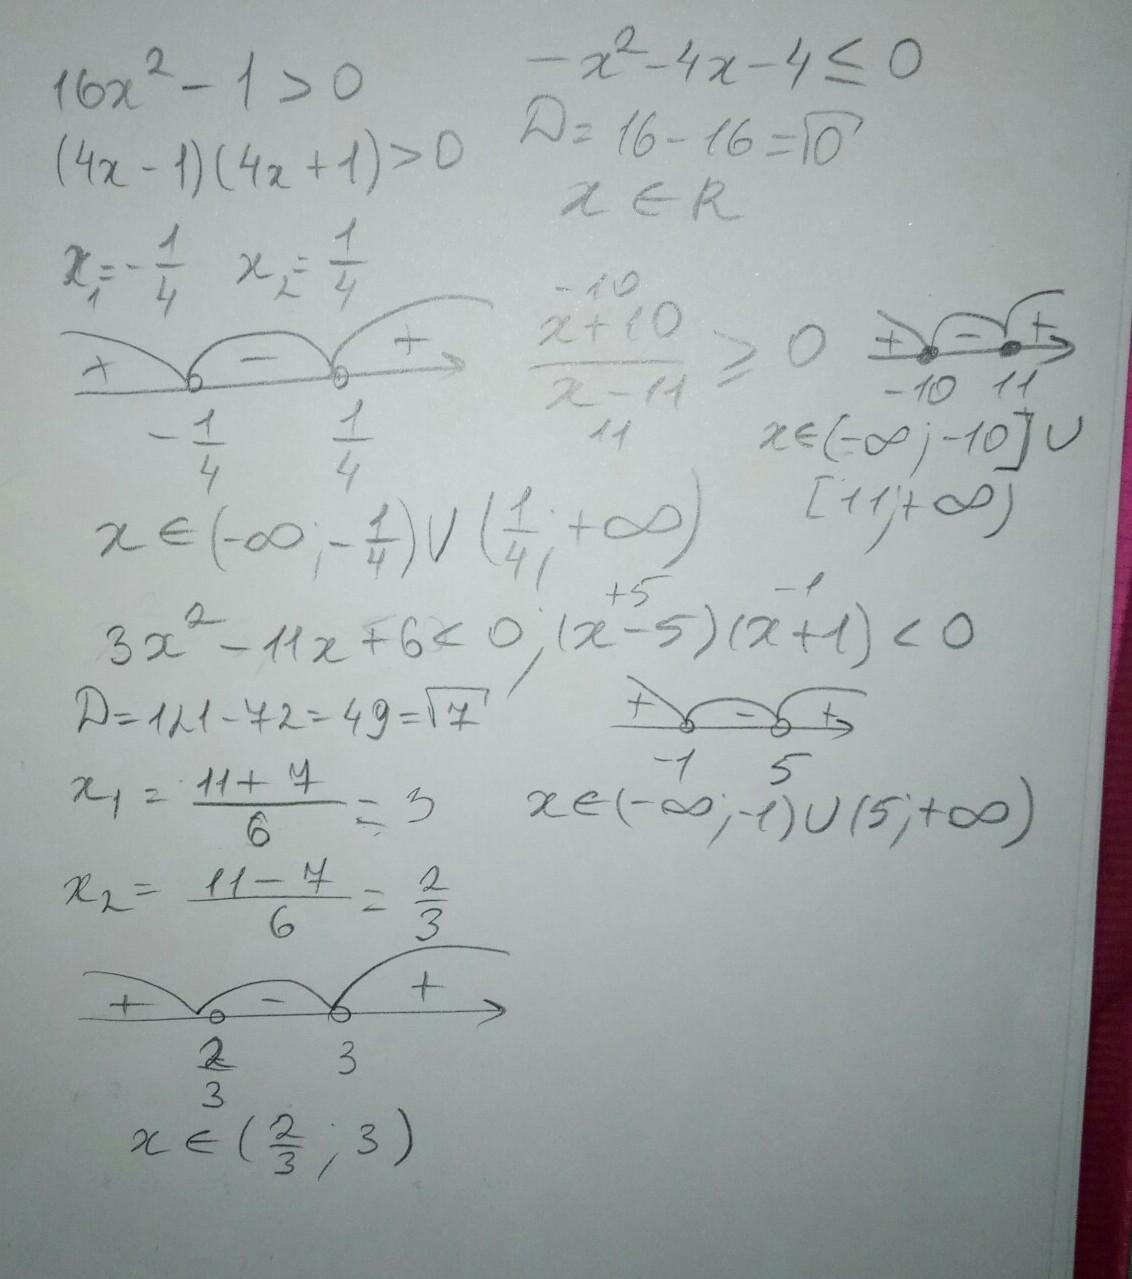 16x² - 1 > 0
(4x - 1)(4x + 1) > 0
x₁ = -1/4 x₂ = 1/4
+ - +
-1/4 1/4
x ∈ (-∞; -1/4) ∪ (1/4; +∞)
-x² - 4x - 4 ≤ 0
D = 16 - 16 = √0
x ∈ R
-10
x + 10
x - 11
≥ 0
11
+ - +
-10 11
x ∈ (-∞; -10] ∪
[11; +∞)
3x² - 11x + 6 < 0;
D = 121 - 72 = 49 = √7
x₁ = (11 + 7)/6 = 3
x₂ = (11 - 7)/6 = 2/3
+ - +
2/3 3
x ∈ (2/3; 3)
+5 -1
(x - 5)(x + 1) < 0
+ - +
-1 5
x ∈ (-∞; -1) ∪ (5; +∞)